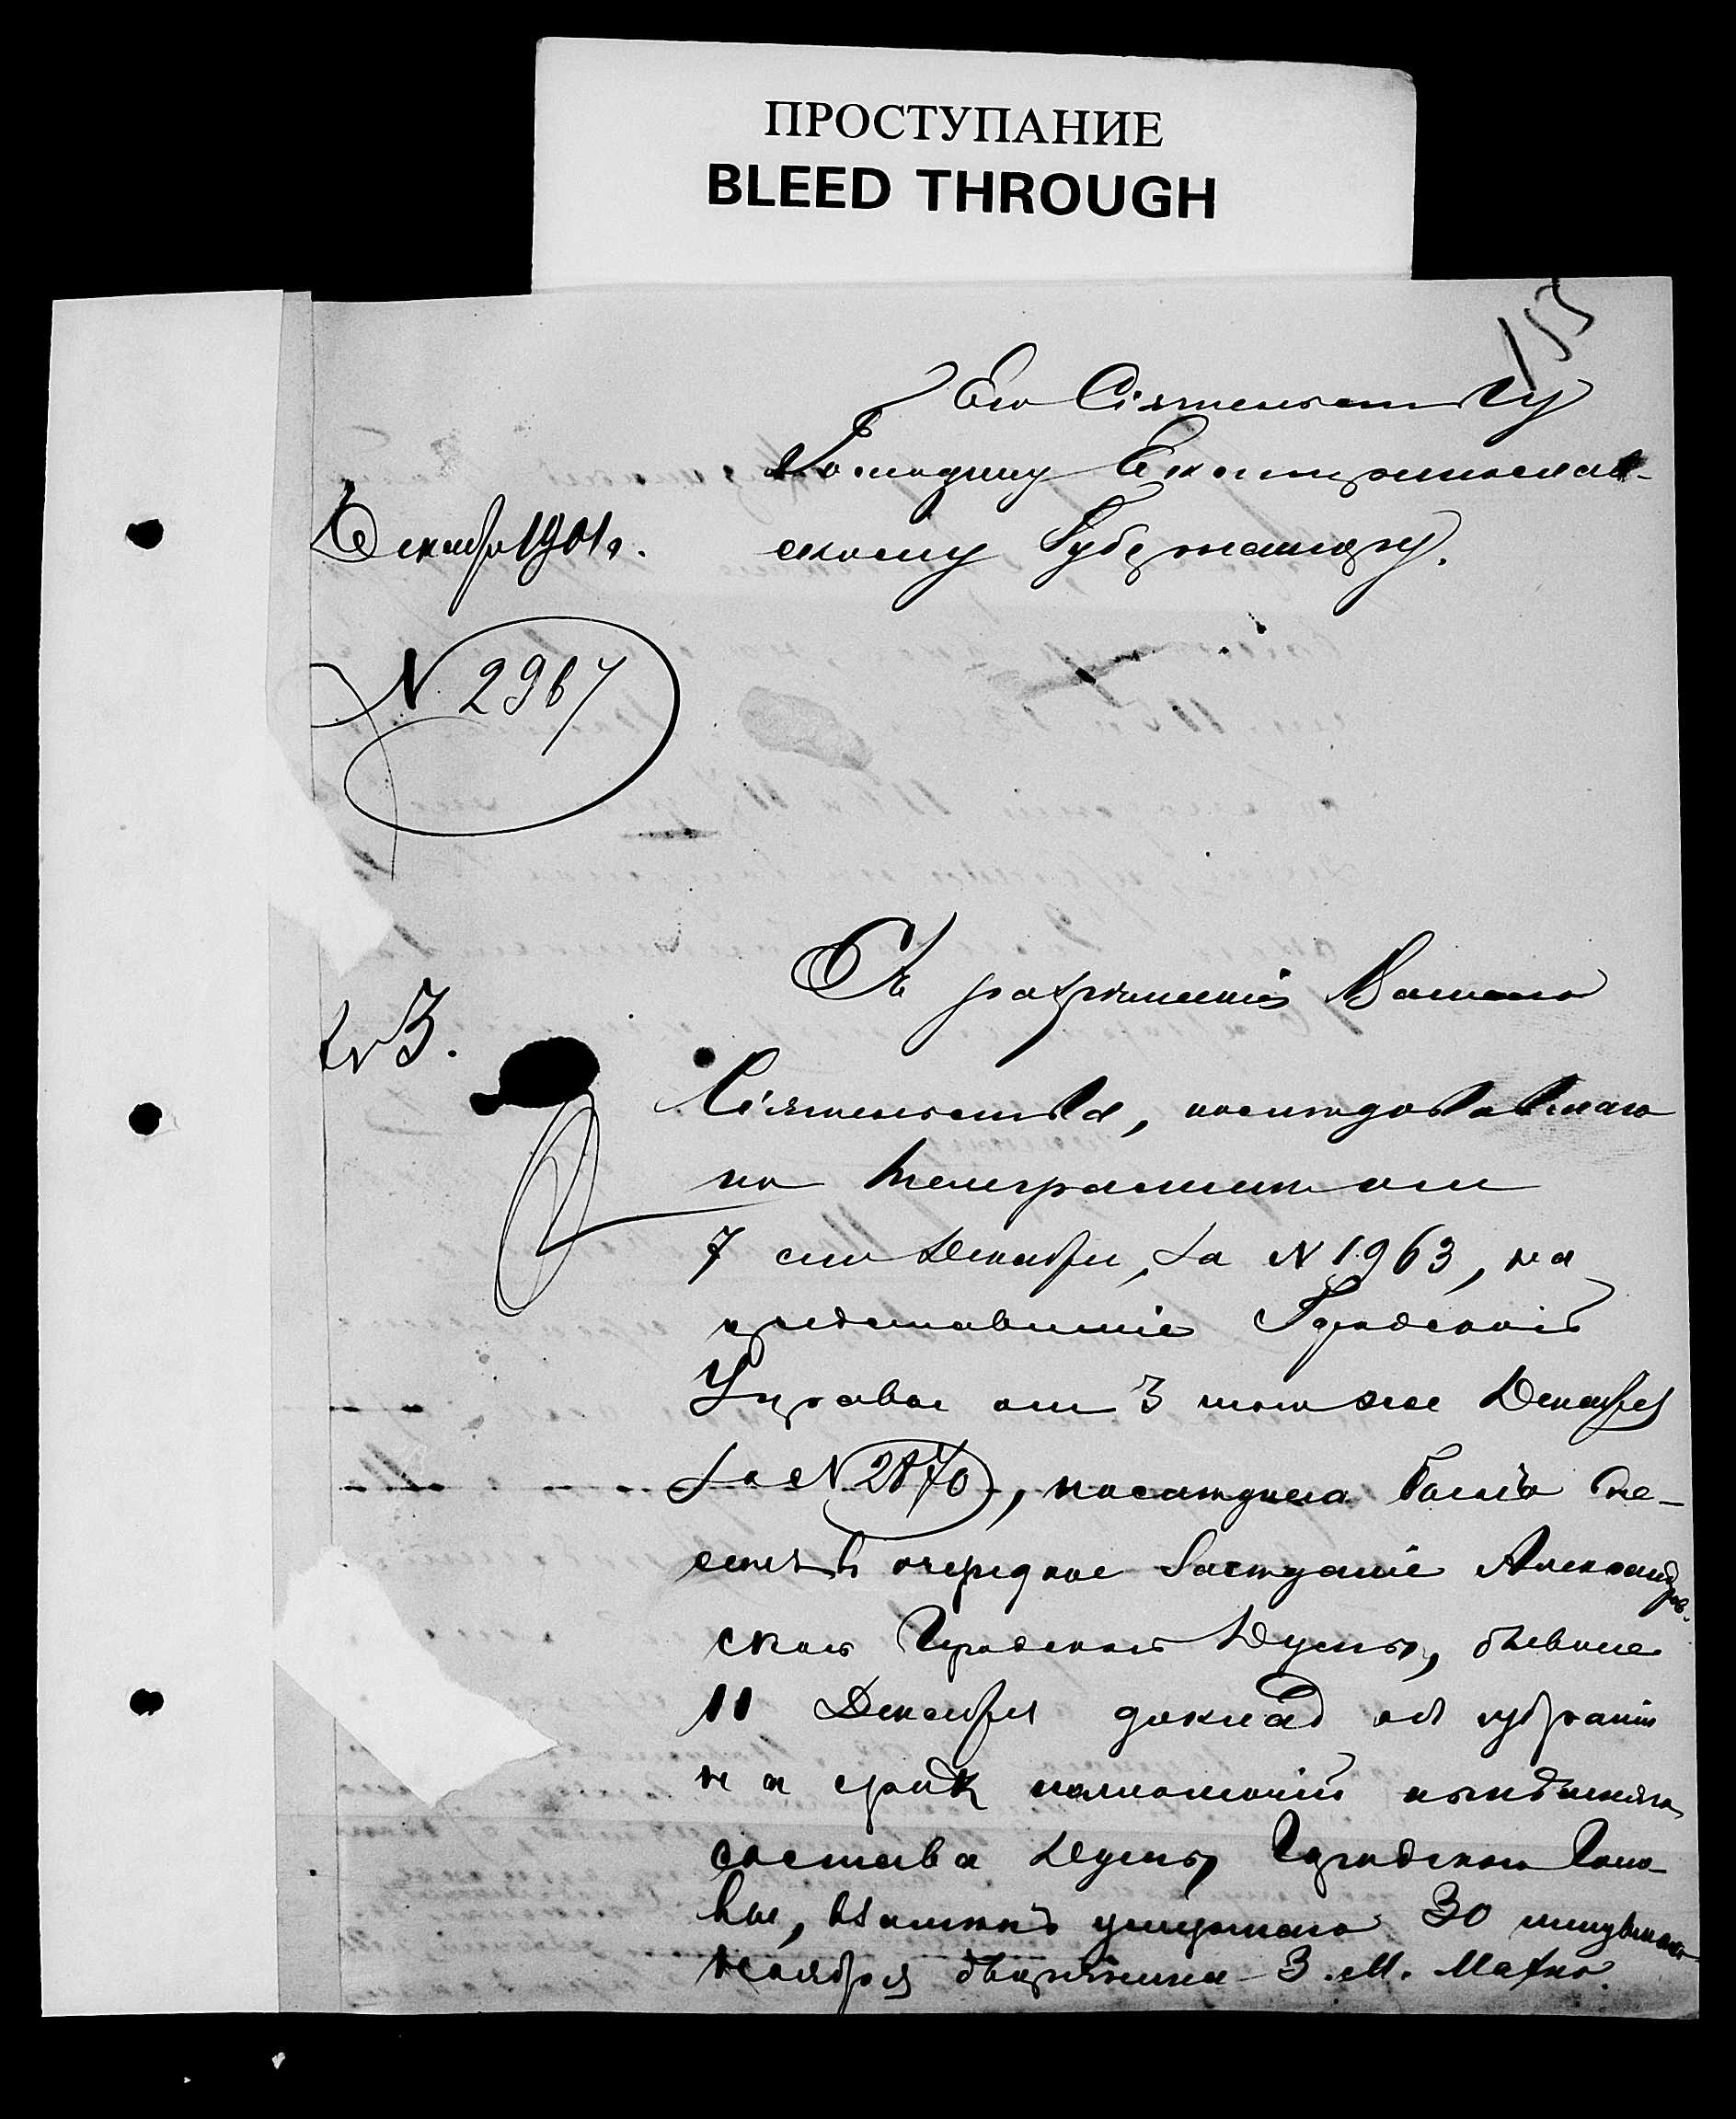 ПРОСТУПАНИЕ
BLEED THROUGH
Его Сіятельству
Господину Екатеринослав-
скому Губернатору.
Декабря 1901 г.
N 2967
Съ разрѣшенія Вашего
Сіятельства, послѣдовавшаго
по телеграммѣ отъ
7 сего Декабря, за N 1963, на
представленіе Городской
Управы отъ 3 того же Декабря
за N 2870, на
очередное засѣданіе Александров-
ской Городской Думы, бывшее
11 Декабря докладъ объ избраніи
на срокъ полномочій нынѣшняго
состава Думы, Городского Голо-
вы, взамѣнъ умершаго 30 минувшаго
Ноября дворянина З. М. Махно.